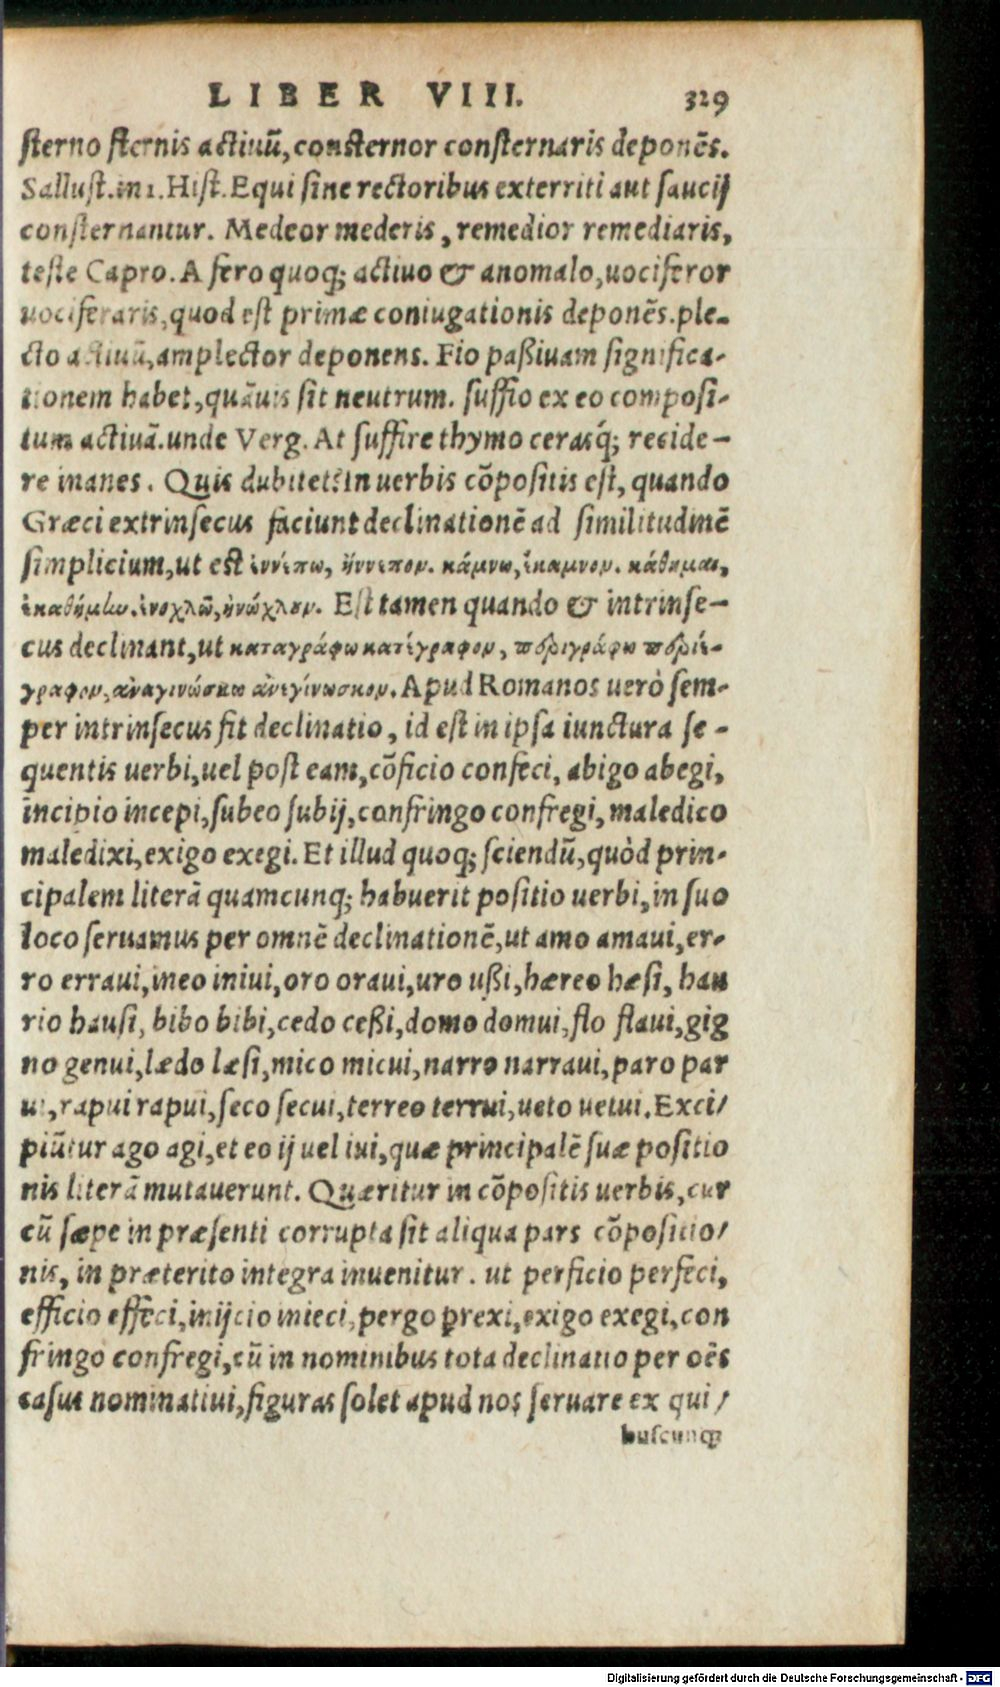 LIBER VIII. 329
sterno sternis actiuũ, consternor consternaris deponẽs.
Sallust. in 1. Hist. Equi sine rectoribus exterriti aut saucij
consternantur. Medeor mederis, remedior remediaris,
teste Capro. A fero quoq; actiuo & anomalo, uociferor
uociferaris, quod est primæ coniugationis deponẽs. ple-
cto actiuũ, amplector deponens. Fio paßiuam significa-
tionem habet, quãuis sit neutrum. suffio ex eo composi-
tum actiuã. unde Verg. At suffire thymo cerasq́; recide-
re inanes. Quis dubitet? In uerbis cõpositis est, quando
Græci extrinsecus faciunt declinationẽ ad similitudinẽ
simplicium, ut est ἐννέπω, ἤννεπον. κάμνω, ἔκαμνον. κάθημαι,
ἐκαθήμην. ἐνοχλῶ, ἠνώχλουν. Est tamen quando & intrinse-
cus declinant, ut καταγράφω κατέγραφον, περιγράφω περιέ-
γραφον, ἀναγινώσκω ἀνεγίνωσκον. Apud Romanos uerò sem-
per intrinsecus fit declinatio, id est in ipsa iunctura se-
quentis uerbi, uel post eam, cõficio confeci, abigo abegi,
incipio incepi, subeo subij, confringo confregi, maledico
maledixi, exigo exegi. Et illud quoq; sciendũ, quòd prin-
cipalem literã quamcunq; habuerit positio uerbi, in suo
loco seruamus per omnẽ declinationẽ, ut amo amaui, er-
ro erraui, ineo iniui, oro oraui, uro ußi, hæreo hæsi, hau
rio hausi, bibo bibi, cedo ceßi, domo domui, flo flaui, gig
no genui, lædo læsi, mico micui, narro narraui, paro par
ui, rapui rapui, seco secui, terreo terrui, ueto uetui. Exci/
piũtur ago agi, et eo ij uel iui, quæ principalẽ suæ positio
nis literã mutauerunt. Quæritur in cõpositis uerbis, cur
cũ sæpe in præsenti corrupta sit aliqua pars cõpositio/
nis, in præterito integra inuenitur. ut perficio perfeci,
efficio effeci, inijcio inieci, pergo prexi, exigo exegi, con
fringo confregi, cũ in nominibus tota declinatio per oẽs
casus nominatiui, figuras solet apud nos seruare ex qui/
buscunq;
Digitalisierung gefördert durch die Deutsche Forschungsgemeinschaft - DFG